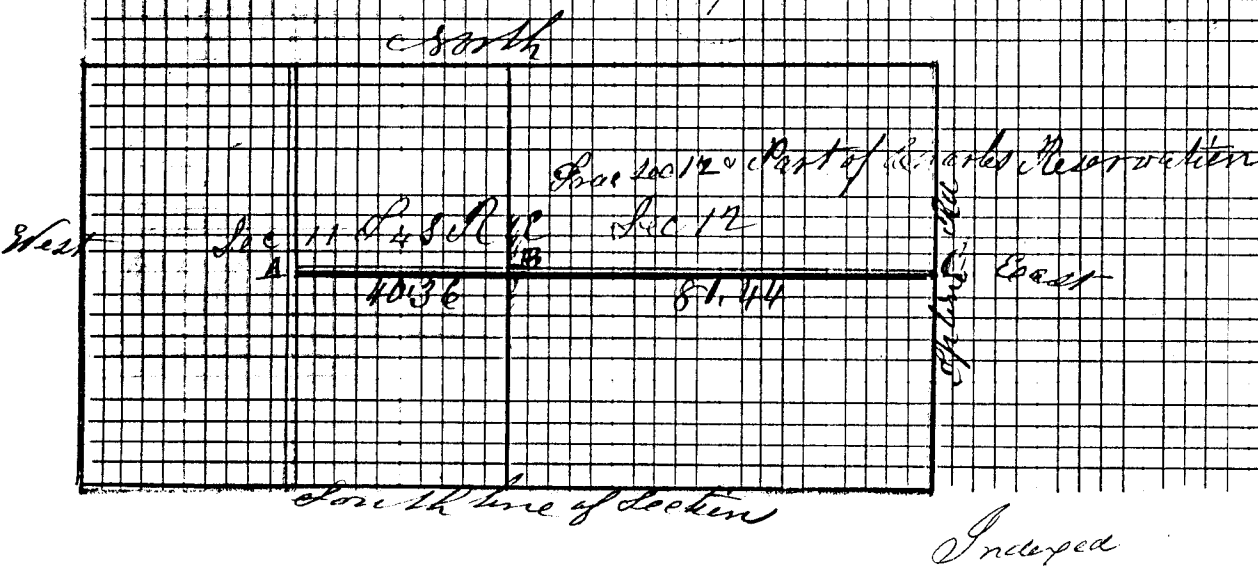 North
Frac sec 12 & Part of Reservation
West
Sec 11 T 4 S R
Sec 12
A
B
C
East
40.36
81.44
Tp line
South line of Section
Indexed